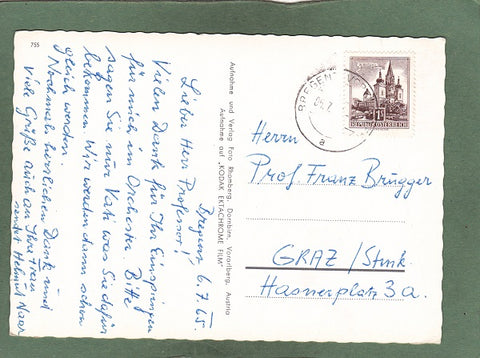 755
Bregenz 6.7.65.
Lieber Herr Professor!
Vielen Dank für Ihr Einspringen
für mich im Orchester. Bitte
sagen Sie nur Vati was Sie dafür
bekommen. Wir werden dann schon
gleich werden.
Nochmals herzlichen Dank und
Viele Grüße auch an Ihre Frau
sendet Helmut
Aufnahme und Verlag Foto Rhomberg, Dornbirn, Vorarlberg, Austria
Aufnahme auf "KODAK EKTACHROME FILM"
BREGENZ
a
REPUBLIK ÖSTERREICH
Herrn
Prof. Franz Brugger
GRAZ /Stmk.
Hasnerplatz 3a.